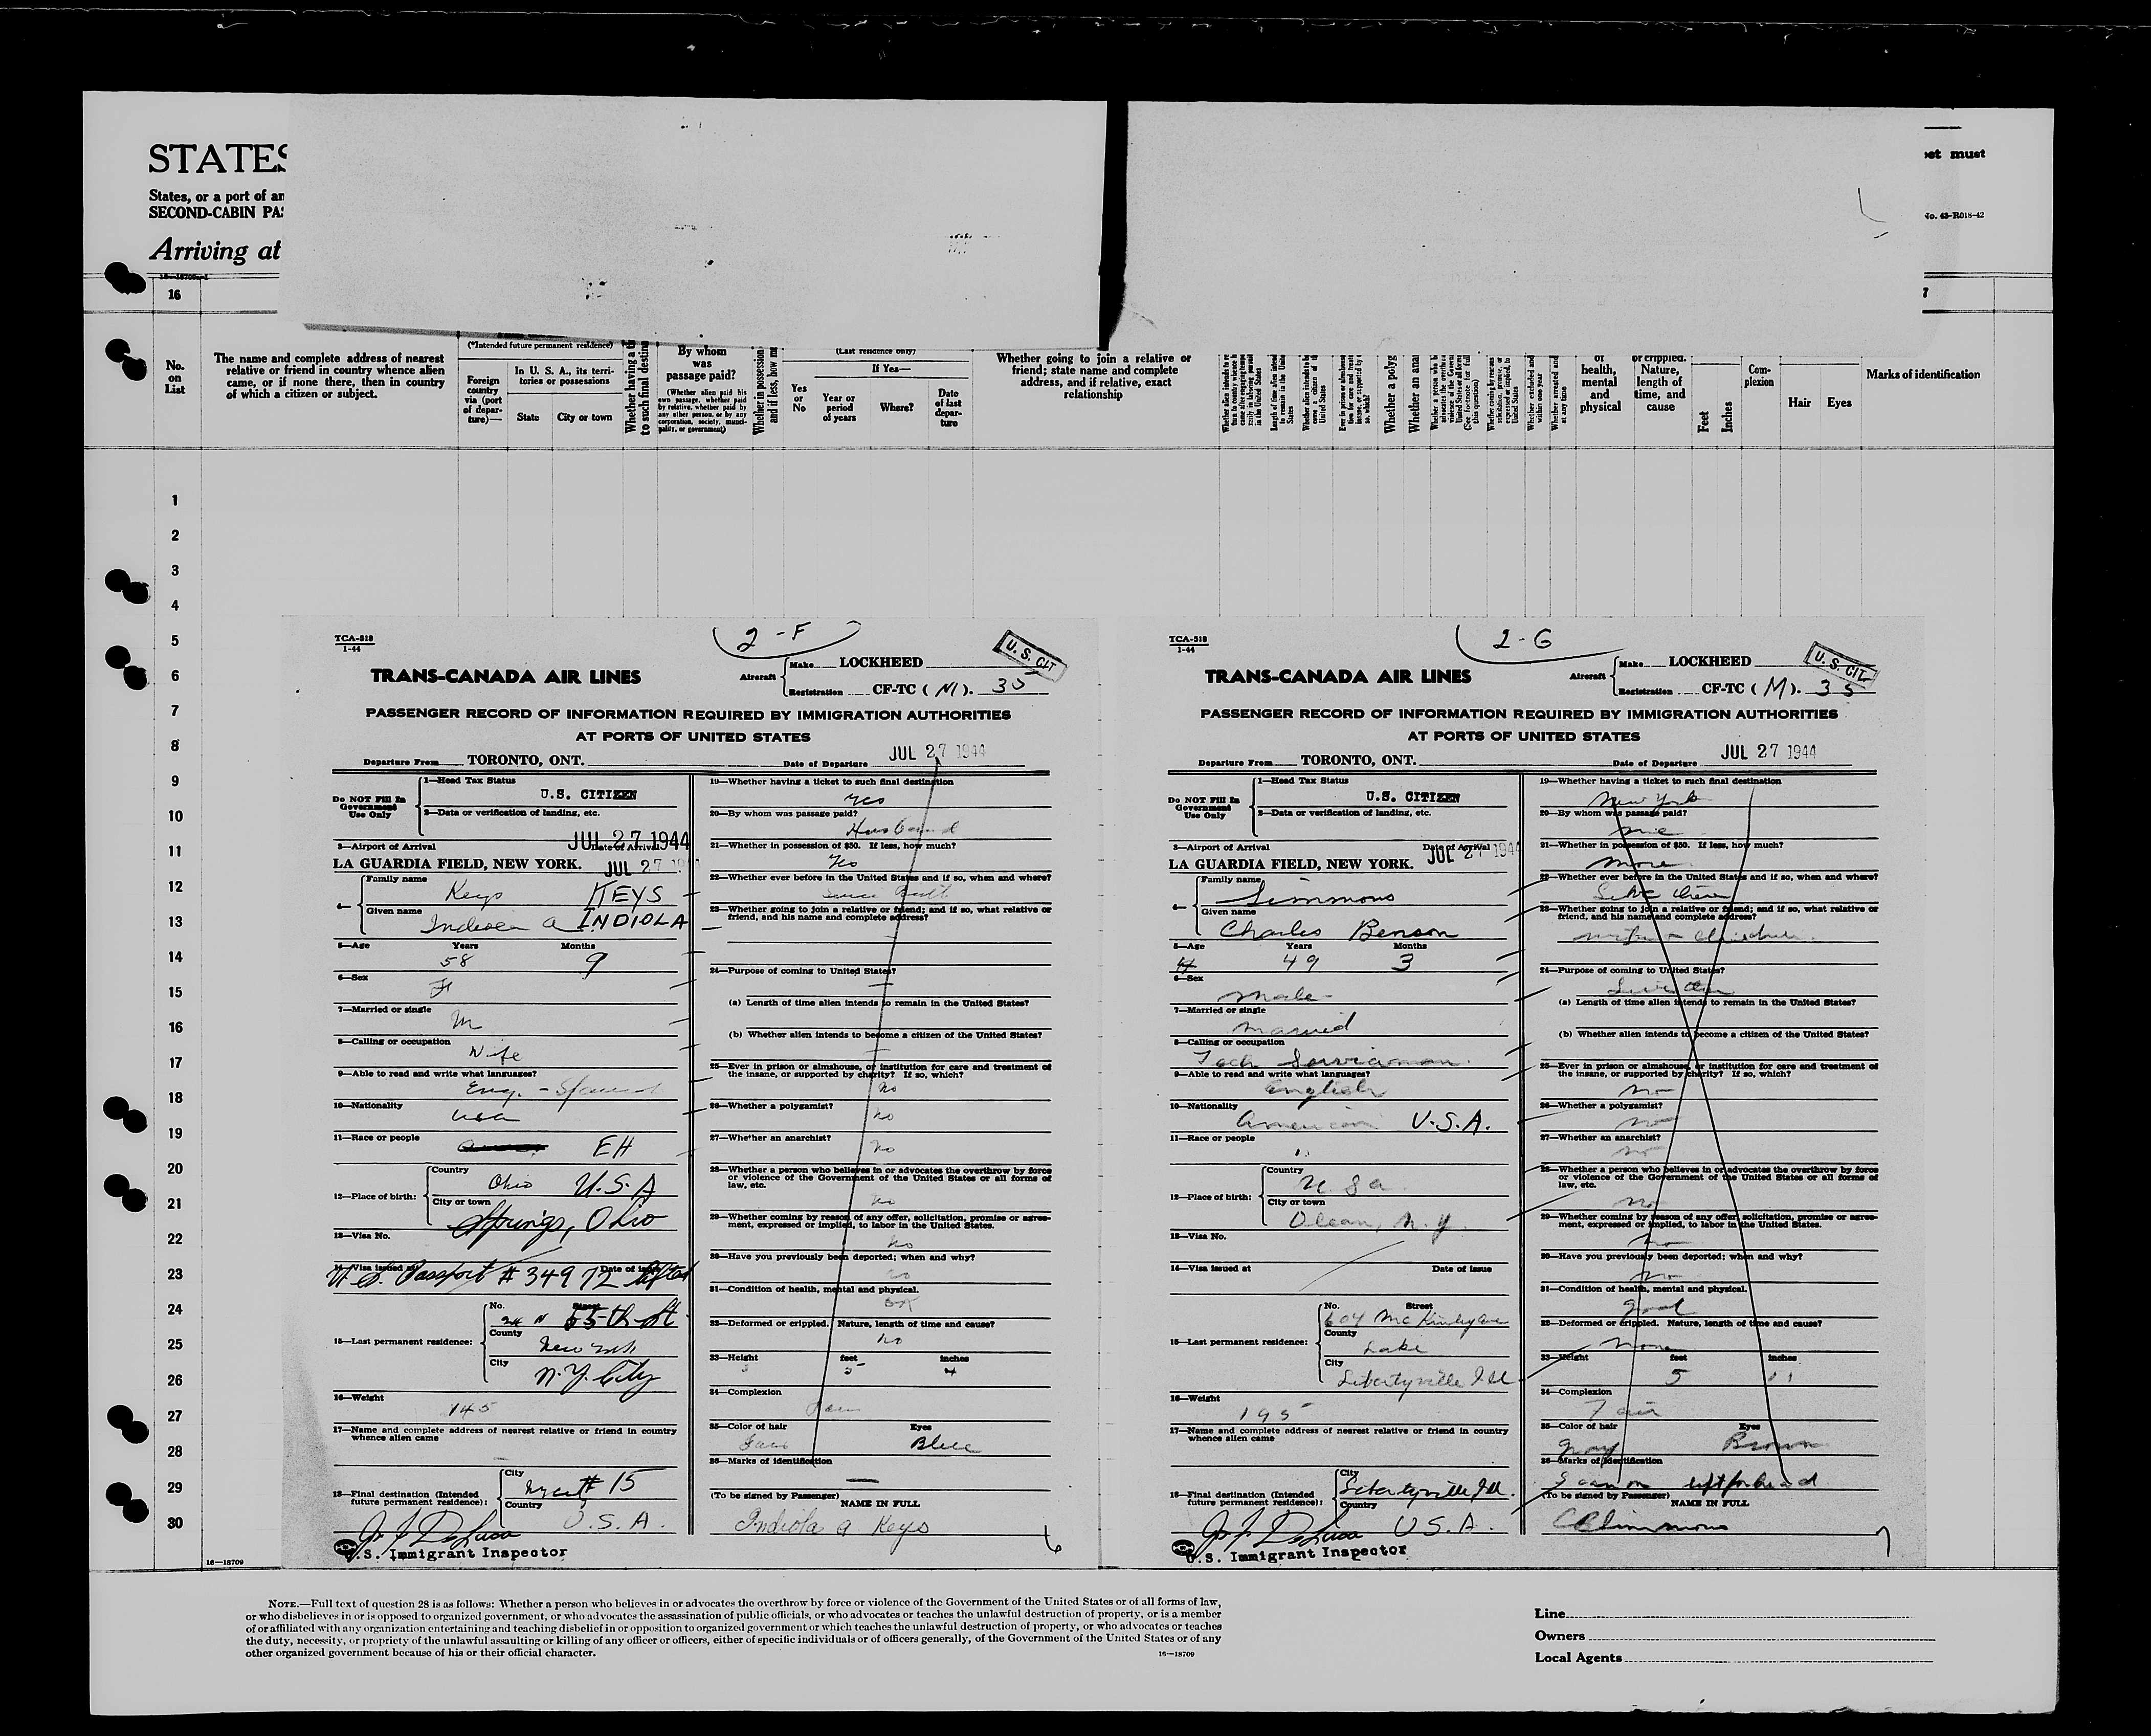 STATES
States, or a port of an
SECOND-CABIN PAS
Arriving at
et must
No. 43-R018-42
16
7
No. on List
The name and complete address of nearest relative or friend in country whence alien came, or if none there, then in country of which a citizen or subject.
(*Intended future permanent residence)
Foreign country via (port of departure)—
In U. S. A., its territories or possessions
State
City or town
Whether having a ti
to such final destina
By whom was passage paid?
(Whether alien paid his own passage, whether paid by relative, whether paid by any other person, or by any corporation, society, municipality, or government)
Whether in possession
and if less, how m
(Last residence only)
If Yes—
Yes or No
Year or period of years
Where?
Date of last departure
Whether going to join a relative or friend; state name and complete address, and if relative, exact relationship
Whether a polyg
Whether an anar
of health, mental and physical
or crippled. Nature, length of time, and cause
Feet
Inches
Complexion
Hair
Eyes
Marks of identification
1
2
3
4
5
6
7
8
9
10
11
12
13
14
15
16
17
18
19
20
21
22
23
24
25
26
27
28
29
30
16—18709
TCA-518
1-44
2-F
U.S. CIT
TRANS-CANADA AIR LINES
Aircraft
Make LOCKHEED
Registration CF-TC (M). 35
PASSENGER RECORD OF INFORMATION REQUIRED BY IMMIGRATION AUTHORITIES
AT PORTS OF UNITED STATES
Departure From TORONTO, ONT. Date of Departure JUL 27 1944
Do NOT Fill In Government Use Only
1—Head Tax Status
U.S. CITIZEN
2—Data or verification of landing, etc.
JUL 27 1944
3—Airport of Arrival Date of Arrival
LA GUARDIA FIELD, NEW YORK. JUL 27
4—
Family name
Keys KEYS
Given name
Indiola A INDIOLA
5—Age Years Months
58 9
6—Sex
F
7—Married or single
M
8—Calling or occupation
Wife
9—Able to read and write what languages?
Eng. - Spanish
10—Nationality
USA
11—Race or people
EH
12—Place of birth:
Country
Ohio U.S.A
City or town
Springs, Ohio
13—Visa No.
14—Visa issued at Date of issue
U.S. Passport # 34972 lifted
15—Last permanent residence:
No. Street
24 W 55th St.
County
New York
City
N.Y. City
16—Weight
145
17—Name and complete address of nearest relative or friend in country whence alien came
18—Final destination (Intended future permanent residence):
City
# 15
Country
U.S.A.
U.S. Immigrant Inspector
19—Whether having a ticket to such final destination
Yes
20—By whom was passage paid?
Husband
21—Whether in possession of $50. If less, how much?
Yes
22—Whether ever before in the United States and if so, when and where?
23—Whether going to join a relative or friend; and if so, what relative or friend, and his name and complete address?
24—Purpose of coming to United States?
(a) Length of time alien intends to remain in the United States?
(b) Whether alien intends to become a citizen of the United States?
25—Ever in prison or almshouse, or institution for care and treatment of the insane, or supported by charity? If so, which?
No
26—Whether a polygamist?
no
27—Whether an anarchist?
no
28—Whether a person who believes in or advocates the overthrow by force or violence of the Government of the United States or all forms of law, etc.
no
29—Whether coming by reason of any offer, solicitation, promise or agreement, expressed or implied, to labor in the United States.
no
30—Have you previously been deported; when and why?
no
31—Condition of health, mental and physical.
OK
32—Deformed or crippled. Nature, length of time and cause?
no
33—Height feet inches
5 4
34—Complexion
Fair
35—Color of hair Eyes
Blue
36—Marks of identification
(To be signed by Passenger)
NAME IN FULL
Indiola A Keys
6
TCA-518
1-44
2-G
U.S. CIT.
TRANS-CANADA AIR LINES
Aircraft
Make LOCKHEED
Registration CF-TC (M). 35
PASSENGER RECORD OF INFORMATION REQUIRED BY IMMIGRATION AUTHORITIES
AT PORTS OF UNITED STATES
Departure From TORONTO, ONT. Date of Departure JUL 27 1944
Do NOT Fill In Government Use Only
1—Head Tax Status
U.S. CITIZEN
2—Data or verification of landing, etc.
3—Airport of Arrival Date of Arrival
LA GUARDIA FIELD, NEW YORK. JUL 27 1944
4—
Family name
Simmons
Given name
Charles Benson
5—Age Years Months
49 3
6—Sex
Male
7—Married or single
Married
8—Calling or occupation
Tech Serviceman.
9—Able to read and write what languages?
English
10—Nationality
American U.S.A.
11—Race or people
12—Place of birth:
Country
U.S.A.
City or town
Olean, N.Y.
13—Visa No.
14—Visa issued at Date of issue
15—Last permanent residence:
No. Street
604 McKinley Ave
County
Lake
City
Libertyville Ill
16—Weight
195
17—Name and complete address of nearest relative or friend in country whence alien came
18—Final destination (Intended future permanent residence):
City
Libertyville Ill.
Country
U.S.A.
U.S. Immigrant Inspector
19—Whether having a ticket to such final destination
New York
20—By whom was passage paid?
me
21—Whether in possession of $50. If less, how much?
more
22—Whether ever before in the United States and if so, when and where?
Live there
23—Whether going to join a relative or friend; and if so, what relative or friend, and his name and complete address?
wife + children.
24—Purpose of coming to United States?
Live there
(a) Length of time alien intends to remain in the United States?
(b) Whether alien intends to become a citizen of the United States?
25—Ever in prison or almshouse, or institution for care and treatment of the insane, or supported by charity? If so, which?
no
26—Whether a polygamist?
no
27—Whether an anarchist?
no
28—Whether a person who believes in or advocates the overthrow by force or violence of the Government of the United States or all forms of law, etc.
no
29—Whether coming by reason of any offer, solicitation, promise or agreement, expressed or implied, to labor in the United States.
no
30—Have you previously been deported; when and why?
no
31—Condition of health, mental and physical.
good
32—Deformed or crippled. Nature, length of time and cause?
none
33—Height feet inches
5 11
34—Complexion
Fair
35—Color of hair Eyes
Gray Brown
36—Marks of identification
Scar on left forhead
(To be signed by Passenger)
NAME IN FULL
CB Simmons
7
NOTE.—Full text of question 28 is as follows: Whether a person who believes in or advocates the overthrow by force or violence of the Government of the United States or of all forms of law,
or who disbelieves in or is opposed to organized government, or who advocates the assassination of public officials, or who advocates or teaches the unlawful destruction of property, or is a member
of or affiliated with any organization entertaining and teaching disbelief in or opposition to organized government or which teaches the unlawful destruction of property, or who advocates or teaches
the duty, necessity, or propriety of the unlawful assaulting or killing of any officer or officers, either of specific individuals or of officers generally, of the Government of the United States or of any
other organized government because of his or their official character.
16—18709
Line
Owners
Local Agents